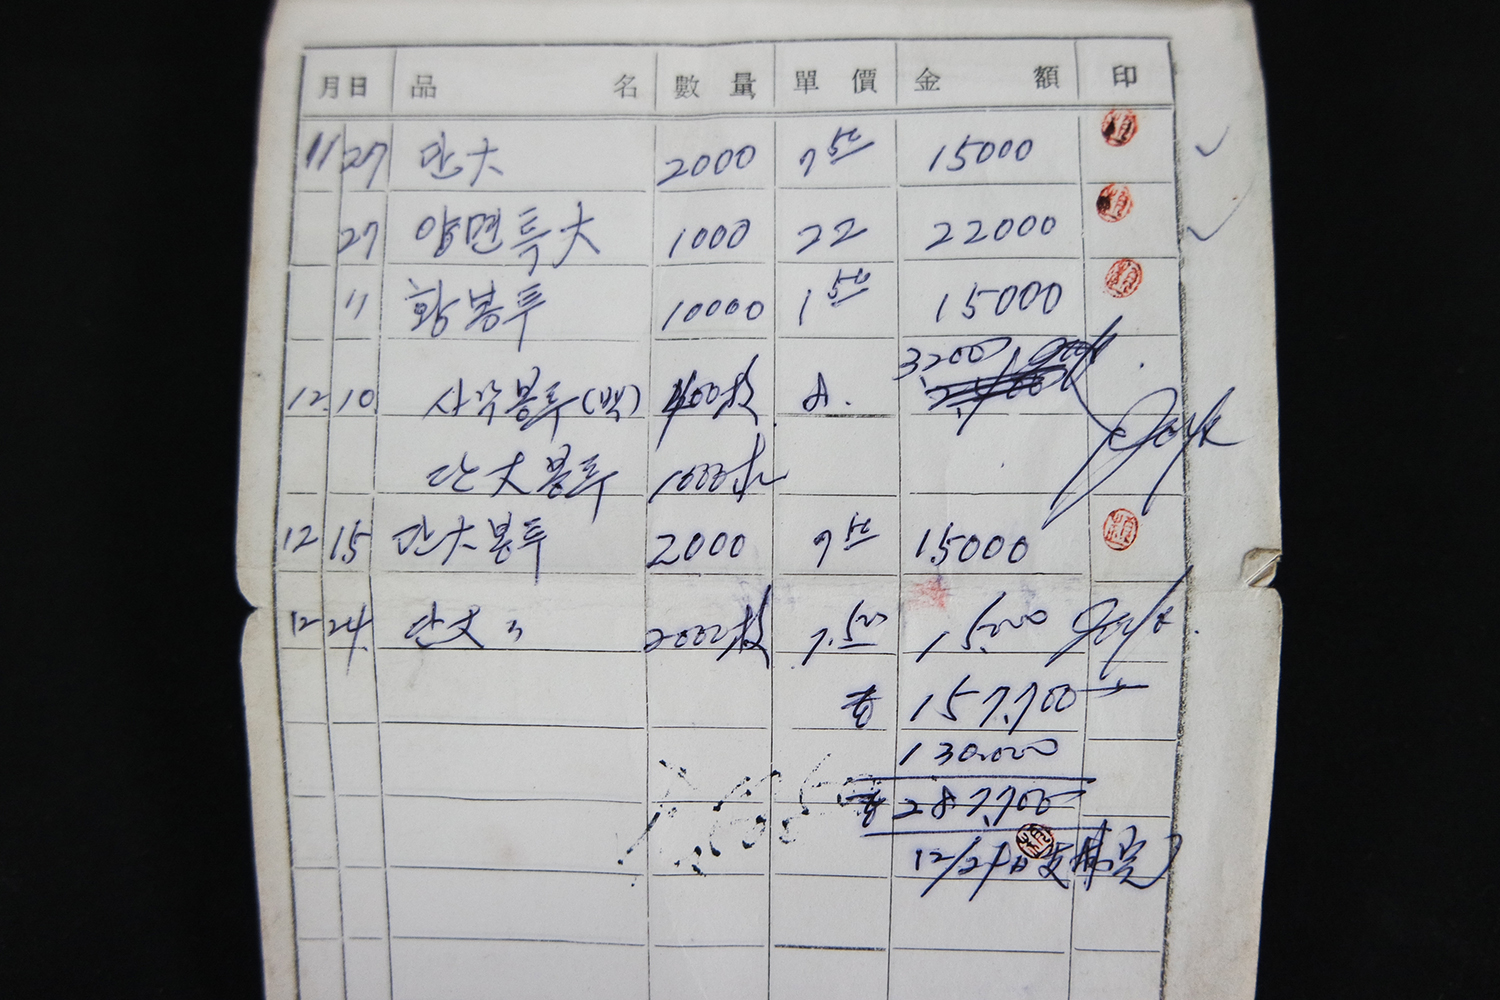 月 日 品 名 數 量 單 價 金 額 印
11 27 단大 2000 7 50 15000
27 양면특大 1000 22 22000
11 황봉투 10000 1 50 15000
12 10 사각봉투(백) 400枚 8. 3,200
단大봉투 1000
12 15 단大봉투 2000 7 50 15000
12 24 단大 〃 2000枚 7.50 15,000
157,700
130,000
287,700
12/21日支拂完